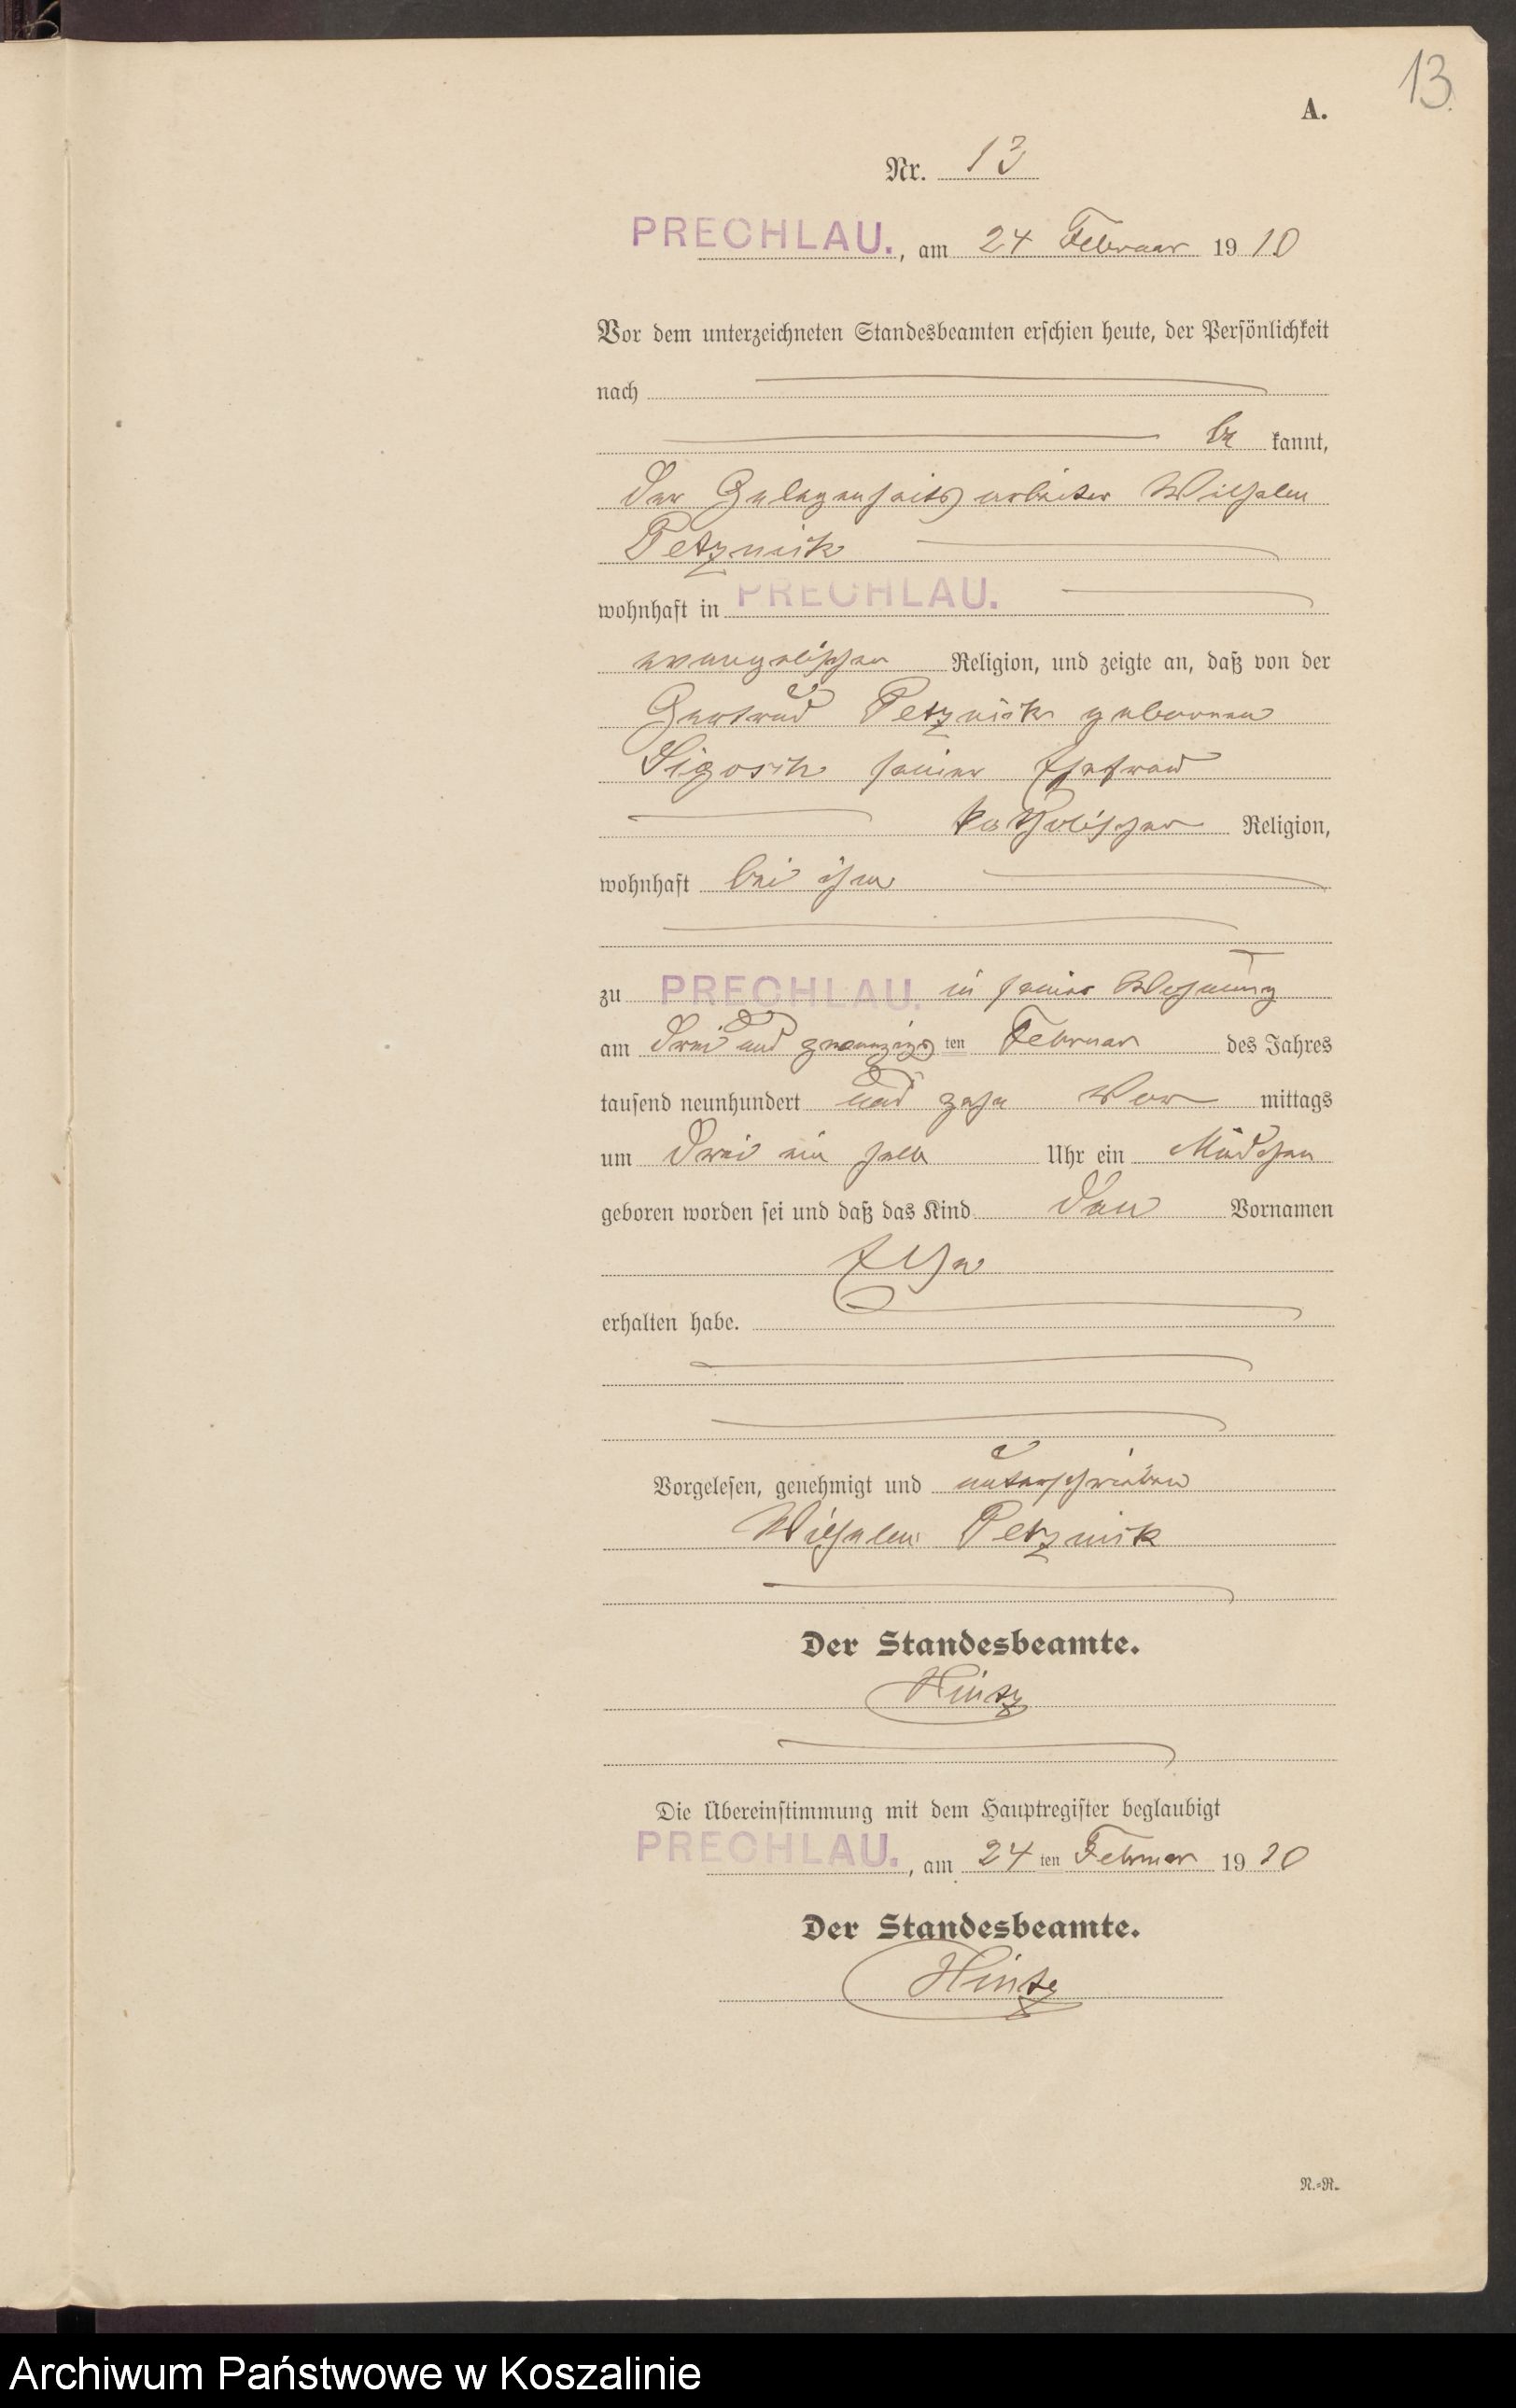 13.
A.
Nr. 13
PRECHLAU., am 24 Februar 1910
Vor dem unterzeichneten Standesbeamten erschien heute, der Persönlichkeit
nach
be kannt,
der Gelegenheitsarbeiter Wilhelm
Petznick
wohnhaft in PRECHLAU.
evangelischer Religion, und zeigte an, daß von der
Gertrud Petznick geborenen
seiner Ehefrau
katholischer Religion,
wohnhaft bei ihm
zu PRECHLAU. in seiner Wohnung
am drei und zwanzigs ten Februar des Jahres
tausend neunhundert und zehn Vor mittags
um drei ein halb Uhr ein Mädchen
geboren worden sei und daß das Kind den Vornamen
Else
erhalten habe.
Vorgelesen, genehmigt und unterschrieben
Wilhelm Petznick
Der Standesbeamte.
Hintz
Die Übereinstimmung mit dem Hauptregister beglaubigt
PRECHLAU., am 24 ten Februar 1910
Der Standesbeamte.
Hintz
N.=R.
Archiwum Państwowe w Koszalinie